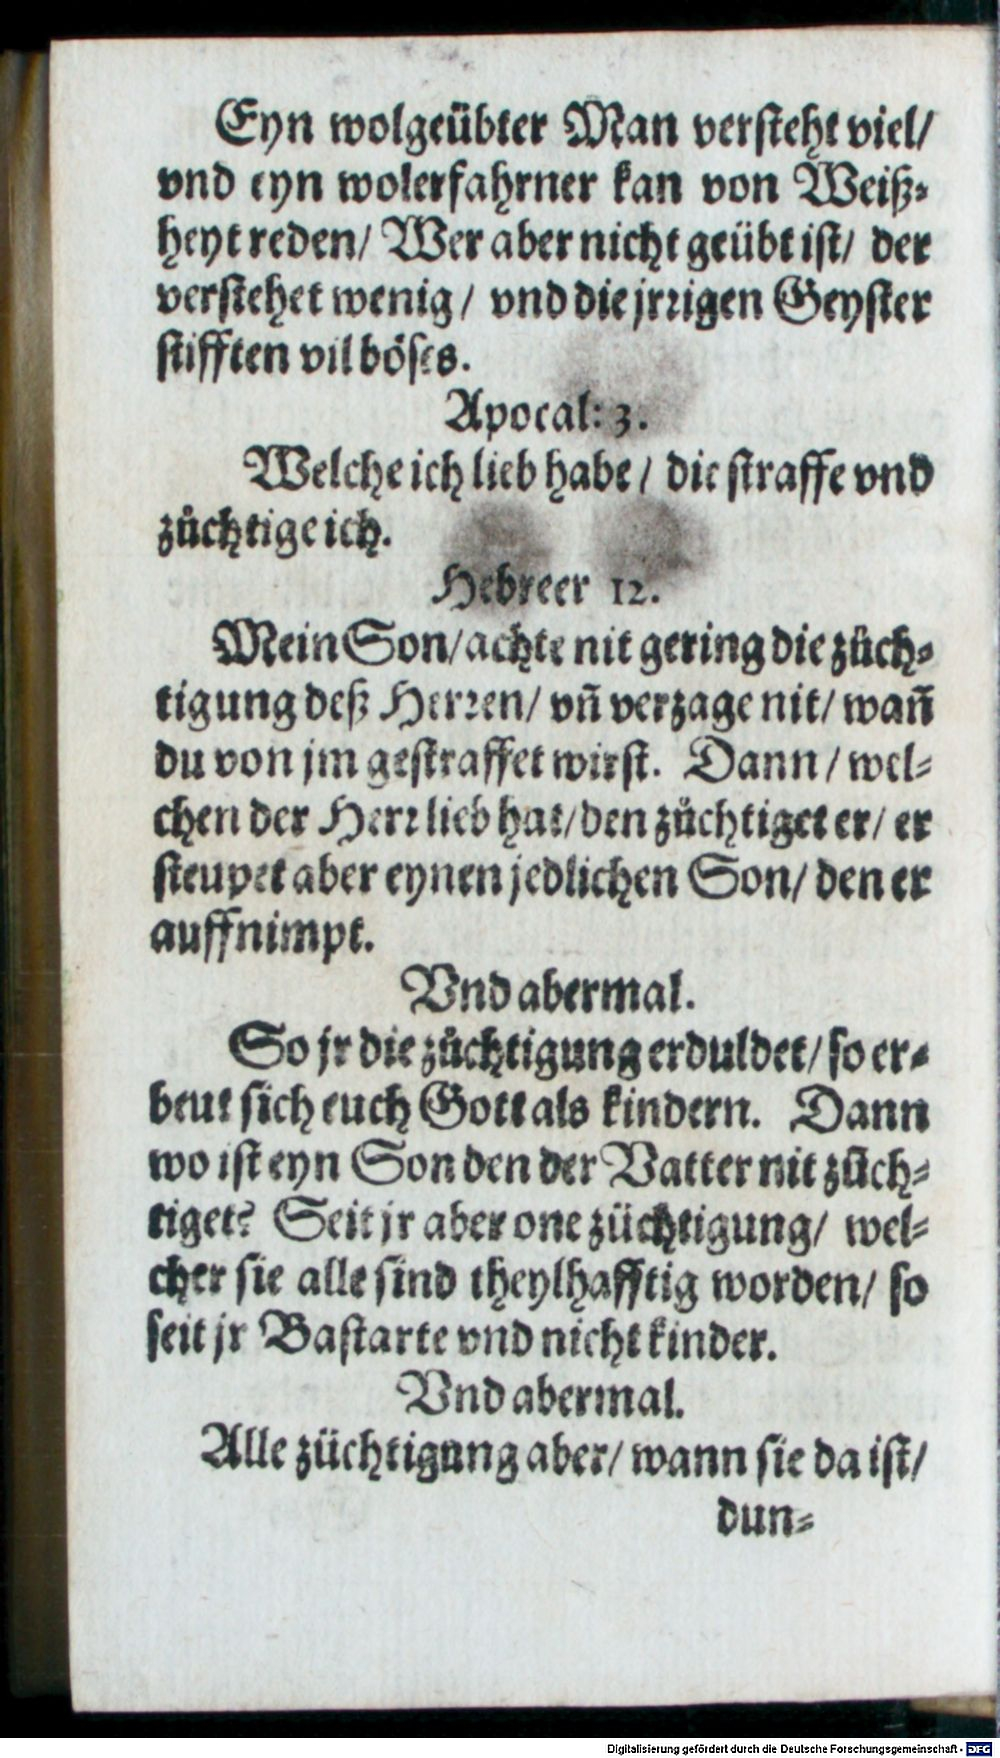 Eyn wolgeübter Man versteht viel/
vnd eyn wolerfahrner kan von Weiß-
heyt reden/ Wer aber nicht geübt ist/ der
verstehet wenig/ vnd die jrrigen Geyster
stifften vil böses.
Apocal: 3.
Welche ich lieb habe/ die straffe vnd
zůchtige ich.
Hebreer 12.
Mein Son/ achte nit gering die züch-
tigung deß Herren/ vn̄ verzage nit/ wan̄
du von jm gestraffet wirst. Dann/ wel-
chen der Herr lieb hat/ den zůchtiget er/ er
steupet aber eynen jedlichen Son/ den er
auffnimpt.
Vnd abermal.
So jr die zůchtigung erduldet/ so er-
beut sich euch Gott als kindern. Dann
wo ist eyn Son den der Vatter nit züch-
tiget? Seit jr aber one züchtigung/ wel-
cher sie alle sind theylhafftig worden/ so
seit jr Bastarte vnd nicht kinder.
Vnd abermal.
Alle züchtigung aber/ wann sie da ist/
dun-
Digitalisierung gefördert durch die Deutsche Forschungsgemeinschaft - DFG